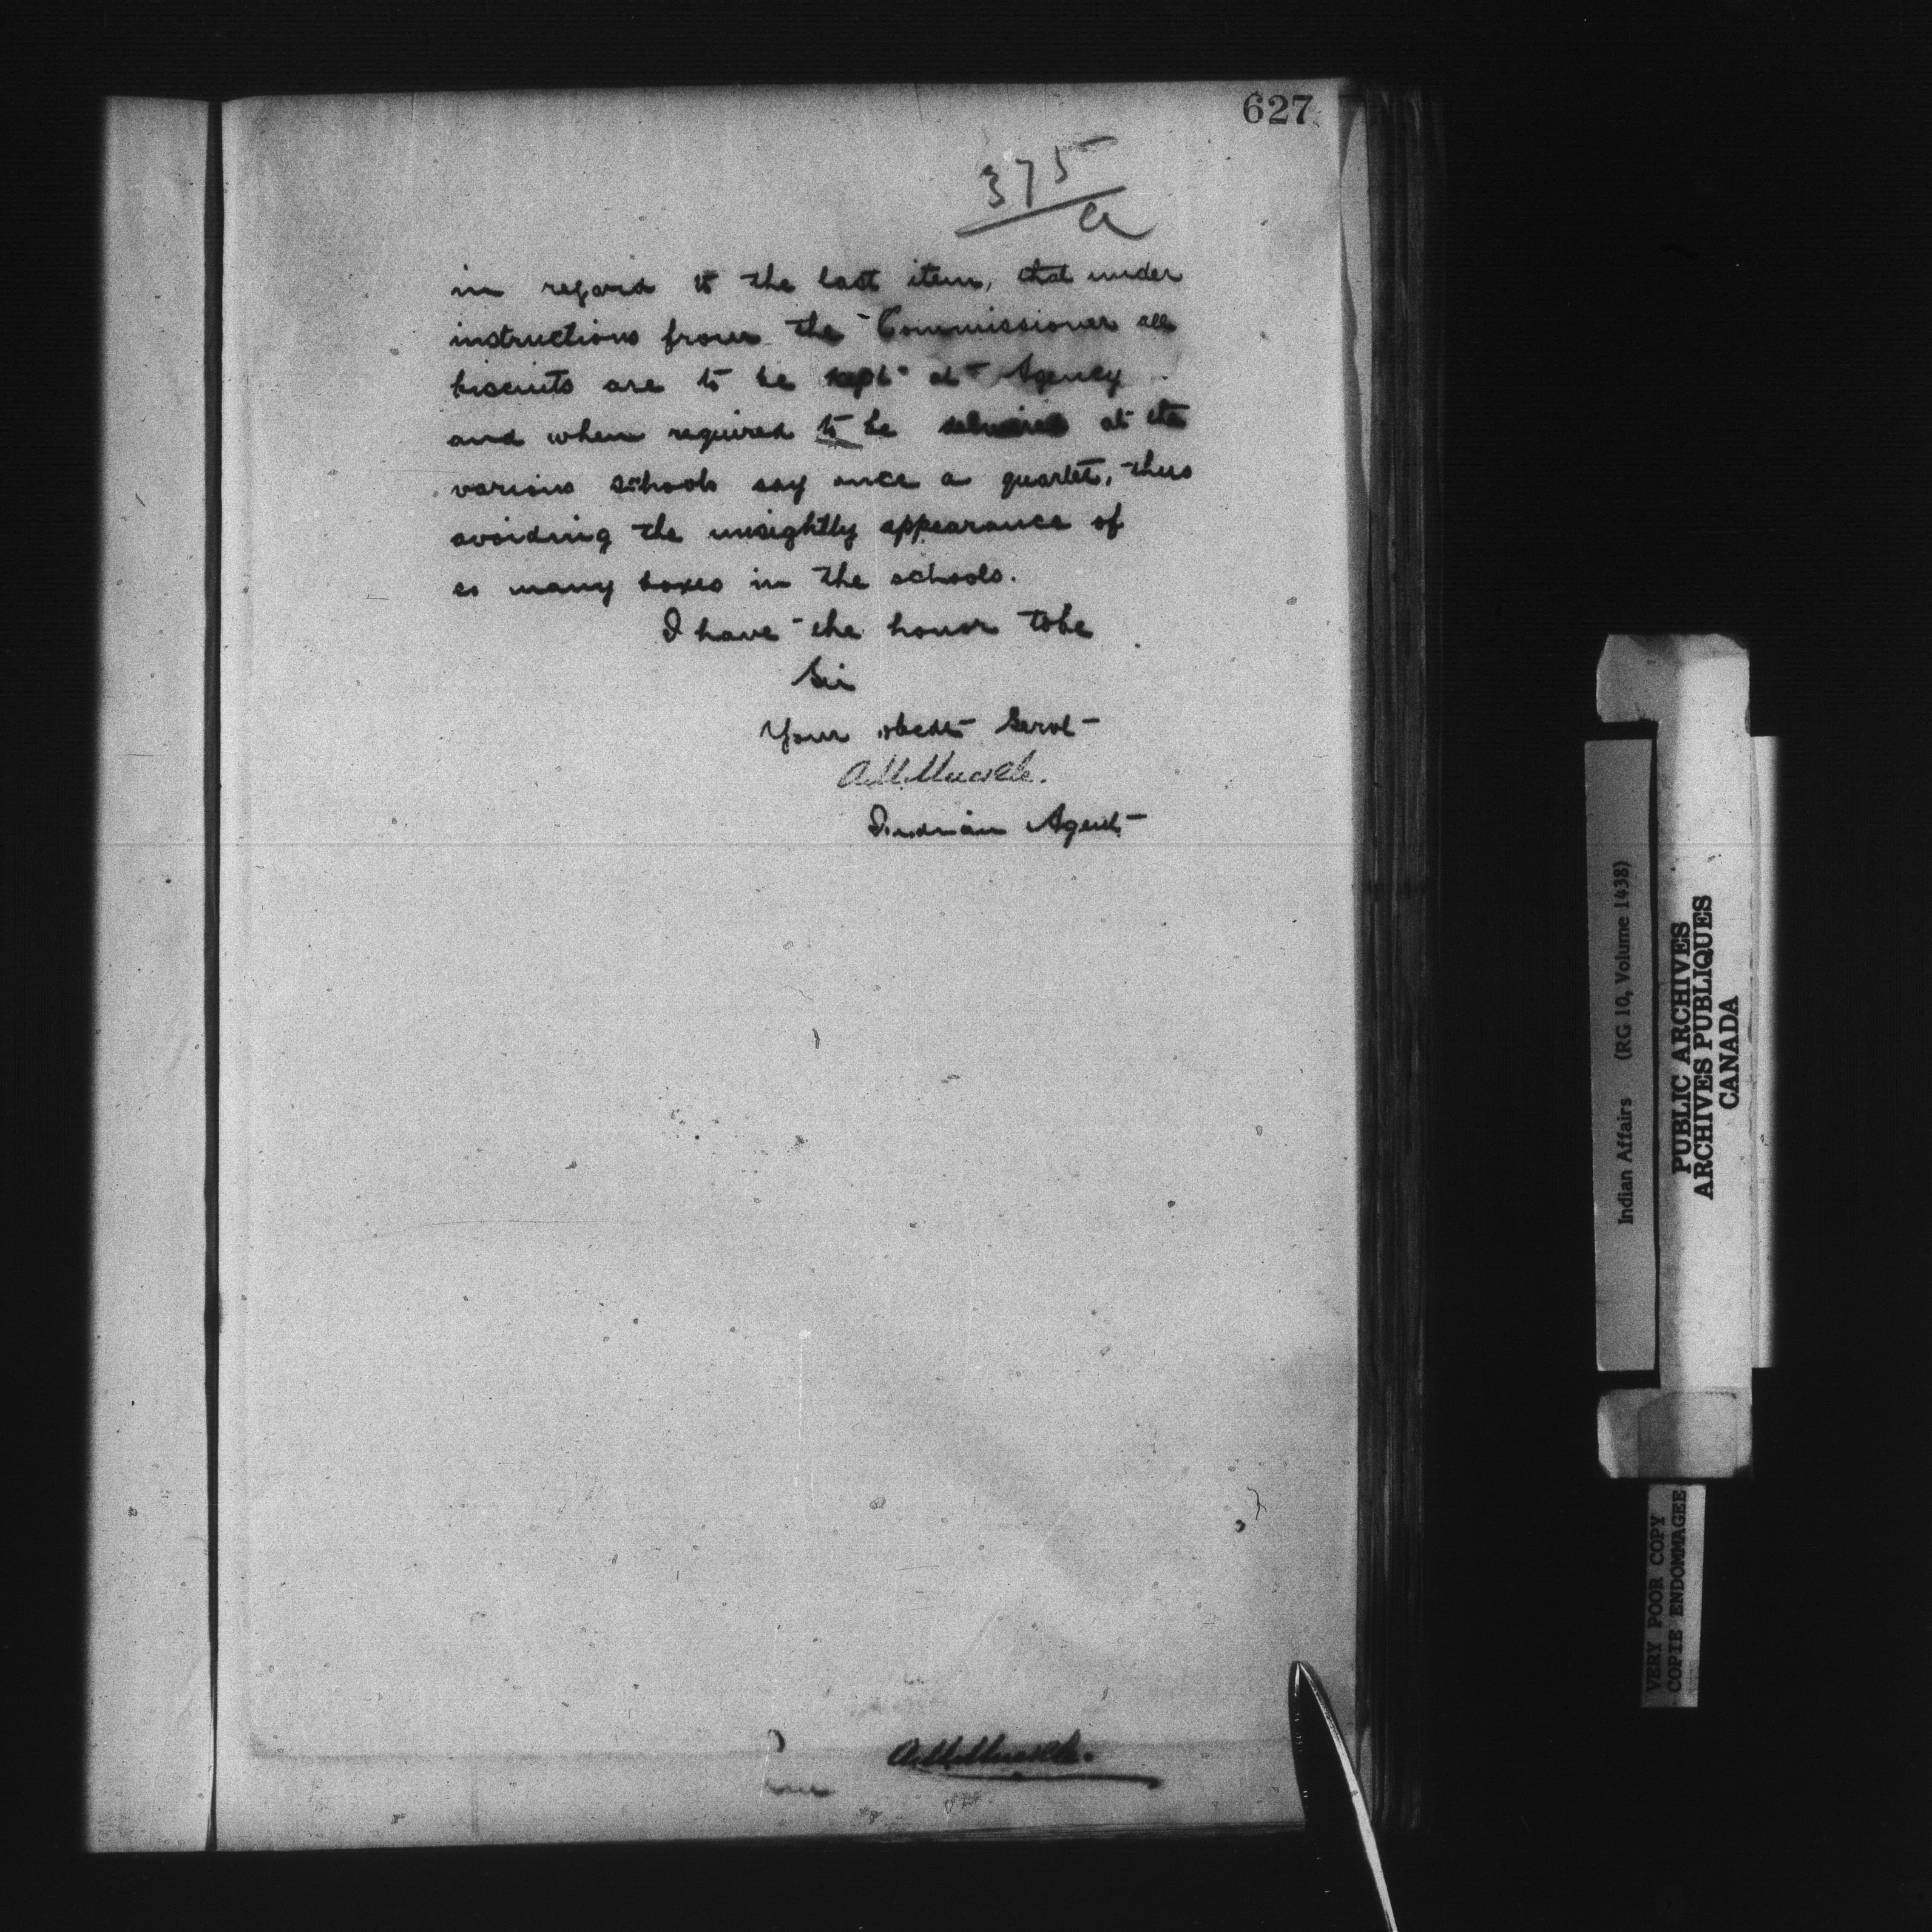 627
375
a
in regard to the last item, that under
instructions from the Commissioner all
biscuits are to be kept at Agency
and when required to be delivered at the
various schools say once a quarter, thus
avoiding the unsightly appearance of
so many boxes in the schools.
I have the honor to be
Sir
Your obedt Servt
Indian Agent
Indian Affairs (RG 10, Volume 1438)
PUBLIC ARCHIVES
ARCHIVES PUBLIQUES
CANADA
VERY POOR COPY
COPIE ENDOMMAGEE